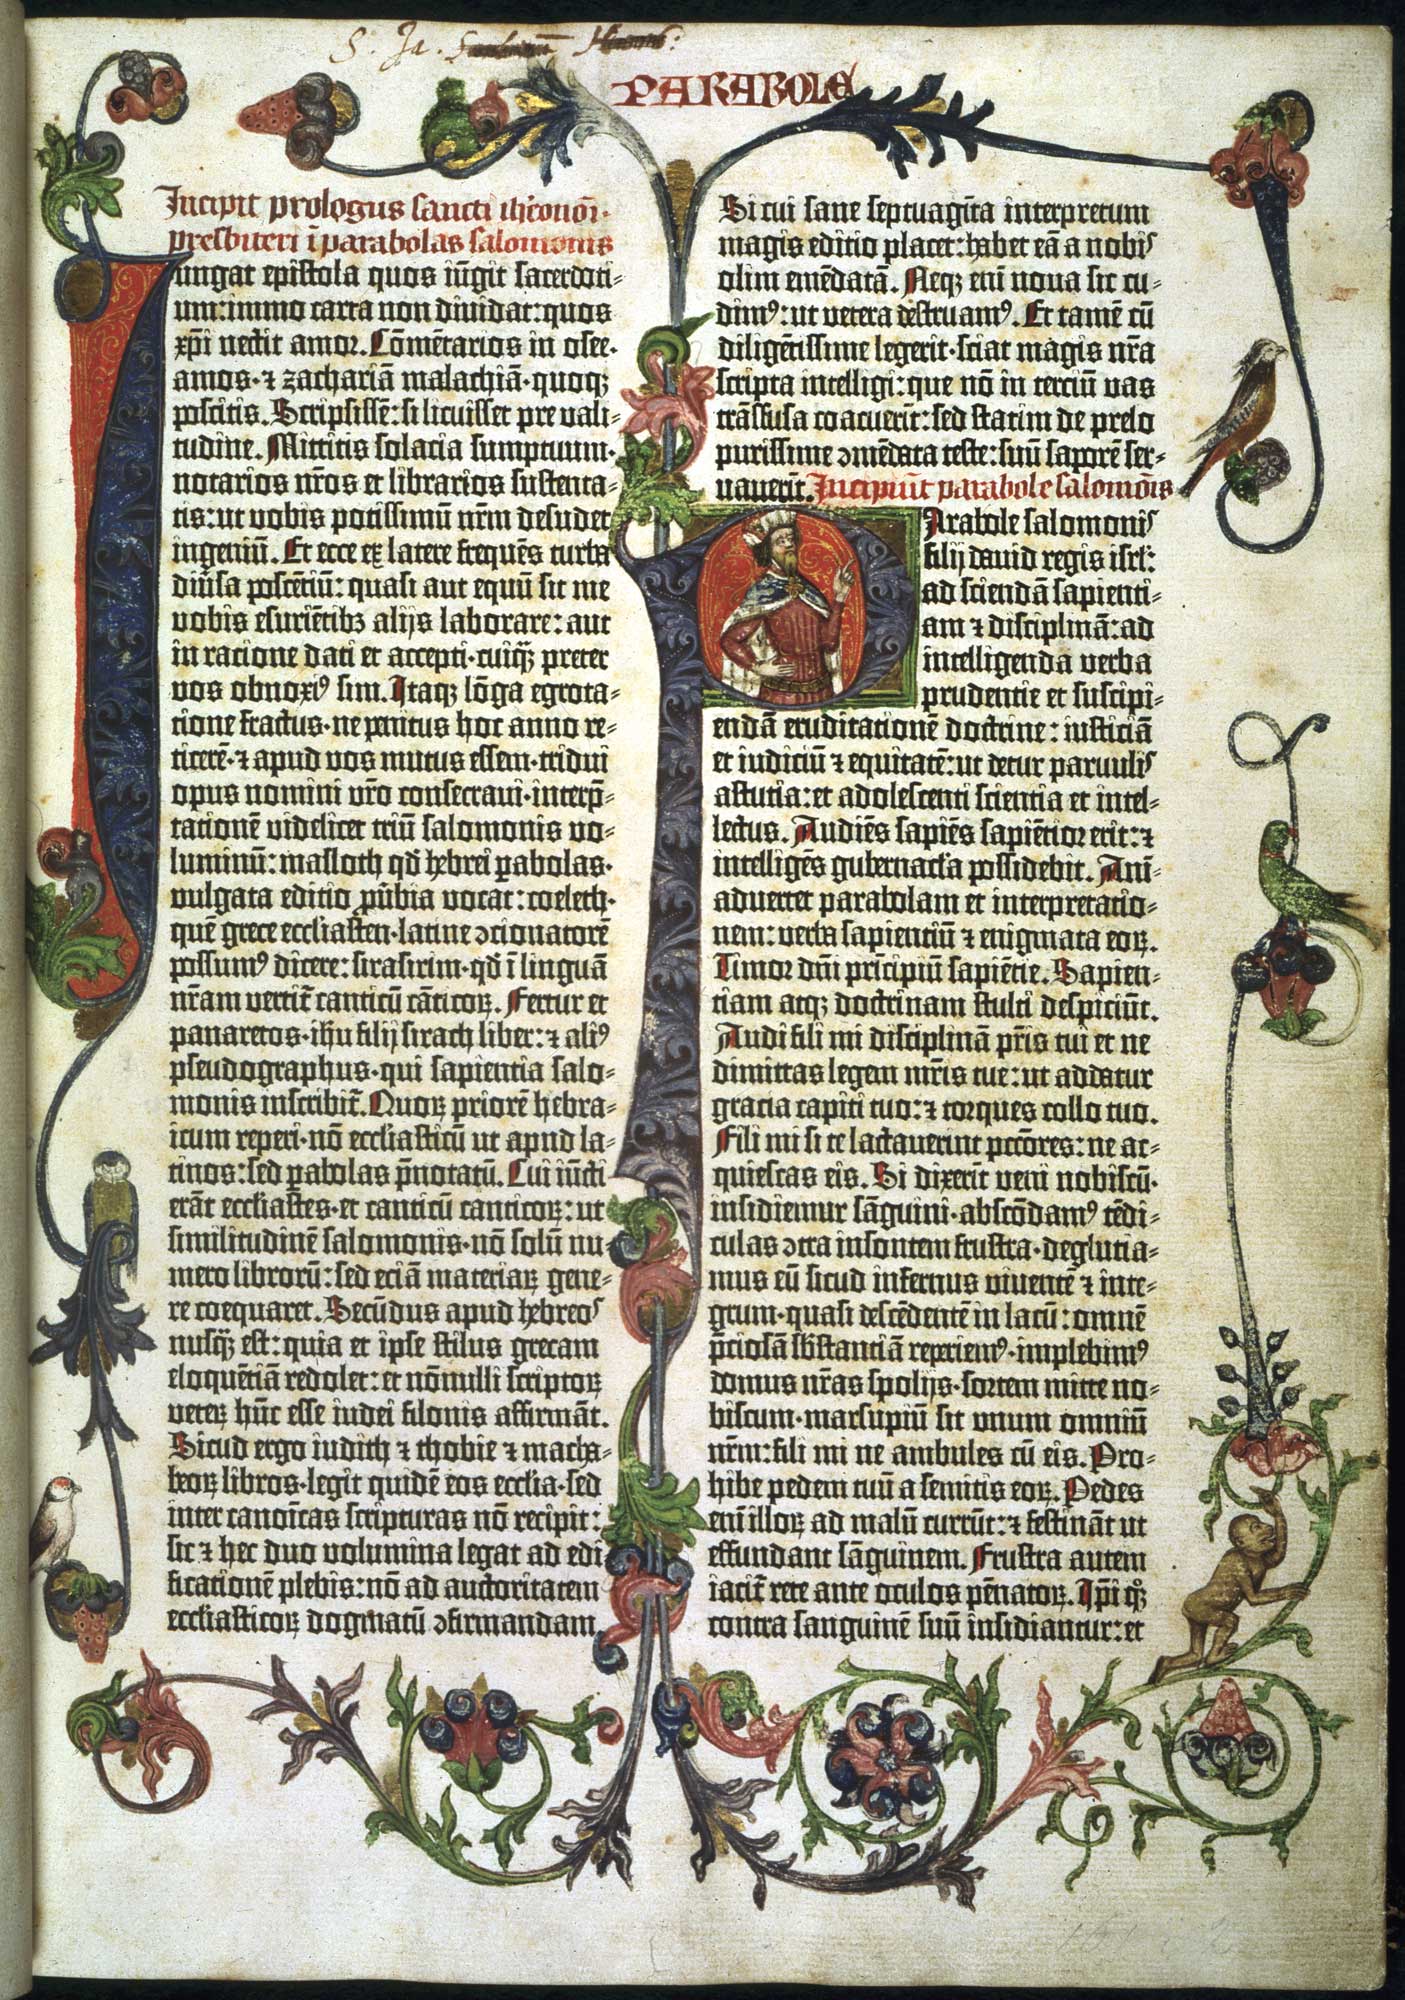 PARABOLE
Incipit prologus sancti iheronimi
presbiteri ī parabolas salomonis
Iungat epistola quos iūgit sacerdoti-
um: immo carta non dividat: quos
xp̄i nectit amor. Cōmētarios in osee·
amos· ⁊ zachariā malachiā· quoqꝫ
poscitis. Scripsissē: si licuisset pre vali-
tudine. Mittitis solacia sumptuum·
notarios nr̄os et librarios sustenta-
tis: ut vobis potissimū nr̄m desudet
ingeniū. Et ecce ex latere frequēs turba
diūsa poscētiū: quasi aut equū sit me
vobis esuriētibꝫ alijs laborare: aut
in racione dati et accepti· cuiq̄ꝫ preter
vos obnoxiꝰ sim. Itaqꝫ lōga egrota-
tione fractus· ne penitus hoc anno re-
ticerē· ⁊ apud vos mutus essem· tridui
opus nomini vr̄o consecravi· interp̄-
tationē videlicet triū salomonis vo-
luminū: masloth qd̄ hebrei ꝑabolas·
vulgata editio ꝓūbia vocat: coeleth·
quē grece eccl̄iasten· latine ↄcionatorē
possumꝰ dicere: sirasirim· qd̄ ī linguā
nr̄am vertit̄ canticū cāticoꝝ. Fertur et
panaretos· ihū filij sirach liber: ⁊ aliꝰ
pseudographus· qui sapientia salo-
monis inscribit̄. Quoꝝ priorē hebra-
icum reperi· nō eccl̄iasticū ut apud la-
tinos: sed ꝑabolas p̄notatū. Cui iūcti
erāt eccl̄iastes· et canticū canticoꝝ: ut
similitudinē salomonis· nō solū nu-
mero librorū: sed eciā materiaꝝ gene-
re coequaret. Secūdus apud hebreos
nusq̄ꝫ est: quia et ipse stilus grecam
eloquētiā redolet: et nōnulli scriptoꝝ
veteꝝ hūc esse iudei filonis affirmāt.
Sicud ergo iudith ⁊ thobie ⁊ macha-
beoꝝ libros· legit quidē eos eccl̄ia· sed
inter canoīcas scripturas nō recipit:
sic ⁊ hec duo volumina legat ad edi
ficationē plebis: nō ad auctoritatem
eccl̄iasticoꝝ dogmatū ↄfirmandam.
Si cui sane septuagīta interpretum
magis editio placet: habet eā a nobis
olim emēdatā. Neqꝫ eni̅ nova sic cu-
dimꝰ: ut vetera destruamꝰ. Et tamē cū
diligētissime legerit· sciat magis nr̄a
scripta intelligi: que nō in terciū vas
trāsfusa coacuerīt: sed statim de prelo
purissime ↄmēdata teste: suū saporē ser-
vaverīt. Incipiūt parabole salomōis
Parabole salomonis
filij david regis isrl̄:
ad sciendā sapienti-
am ⁊ disciplinā: ad
intelligenda verba
prudentie et suscipi-
endā eruditationē doctrine: iusticiā
et iudiciū ⁊ equitatē: ut detur parvulis
astutia: et adolescenti scientia et intel-
lectus. Audiēs sapiēs sapiētior erit: ⁊
intelligēs gubernacl̄a possidebit. Ani̅-
advertet parabolam et interpretatio-
nem: verba sapientiū ⁊ enigmata eoꝝ.
Timor dn̄i prīcipiū sapiētie. Sapien-
tiam atqꝫ doctrinam stulti despiciūt.
Audi fili mi disciplinā pr̄is tui et ne
dimittas legem mr̄is tue: ut addatur
gracia capiti tuo: ⁊ torques collo tuo.
Fili mi si te lactaverint pcc̄ores: ne ac-
quiescas eis. Si dixerīt veni nobiscū·
insidiemur sāguini· abscōdamꝰ tēdi-
culas ↄtra insontem frustra· deglutia-
mus eū sicud infernus viventē ⁊ inte-
grum· quasi descēdentē in lacū: omnē
p̄ciosā sb̄stantiā reperiemꝰ· implebimꝰ
domus nr̄as spolijs· sortem mitte no-
biscum· marsupiū sit unum omniū
nr̄m: fili mi ne ambules cū eis. Pro-
hibe pedem tuū a semitis eoꝝ. Pedes
eni̅ illoꝝ ad malū currūt: ⁊ festināt ut
effundant sāguinem. Frustra autem
iacit̄ rete ante oculos pēnatoꝝ. Ip̄i qꝫ
contra sanguinē suū insidiantur: et